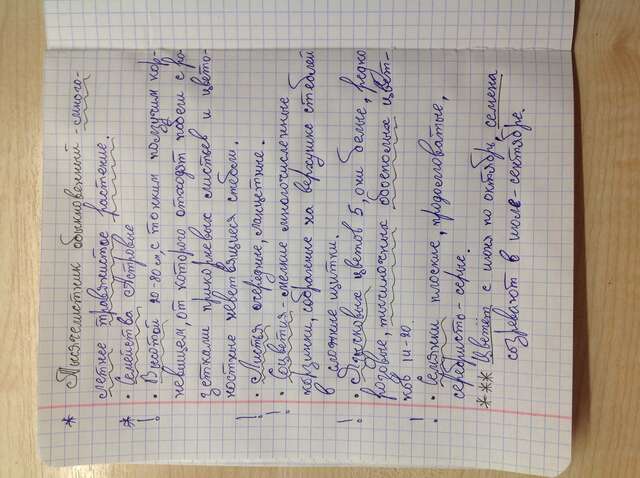 * Тысячелистник обыкновенный - много-
летнее травянистое растение.
* · Семейства Астровые
! · Высотой 20-80 см, с тонким ползучим кор-
невищем, от которого отходят побеги с ро-
зетками прикорневых листьев и цвето-
ностные неветвящиеся стебли.
! · Листья очередные, ланцетные.
! · Соцветия - мелкие многочисленные
корзинки, собранные на верхушке стеблей
в сложные щитки.
! · Язычковых цветов 5, они белые, редко
розовые, тычиночных обоеполых цвет-
ков 14-20.
! · Семянки плоские, продолговатые,
серебристо-серые.
*** Цветет с июня по октябрь, семена
созревают в июле-сентябре.